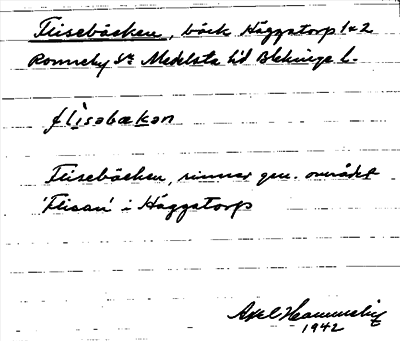 Flisebäcken, bäck Häggatorp 1&2
Ronneby sn Medelsta hd Blekinge l.
flisəbækən
Flisebäcken, rinner gen. området
'Flisan' i Häggatorp
Axel
1942